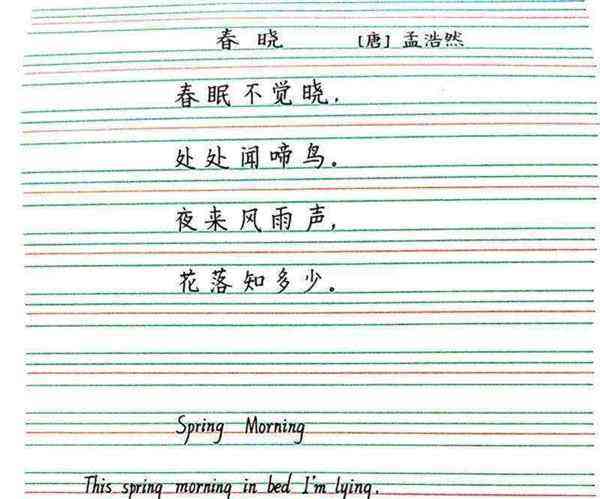 春晓 [唐] 孟浩然
春眠不觉晓，
处处闻啼鸟。
夜来风雨声，
花落知多少。
Spring Morning
This spring morning in bed I'm lying,